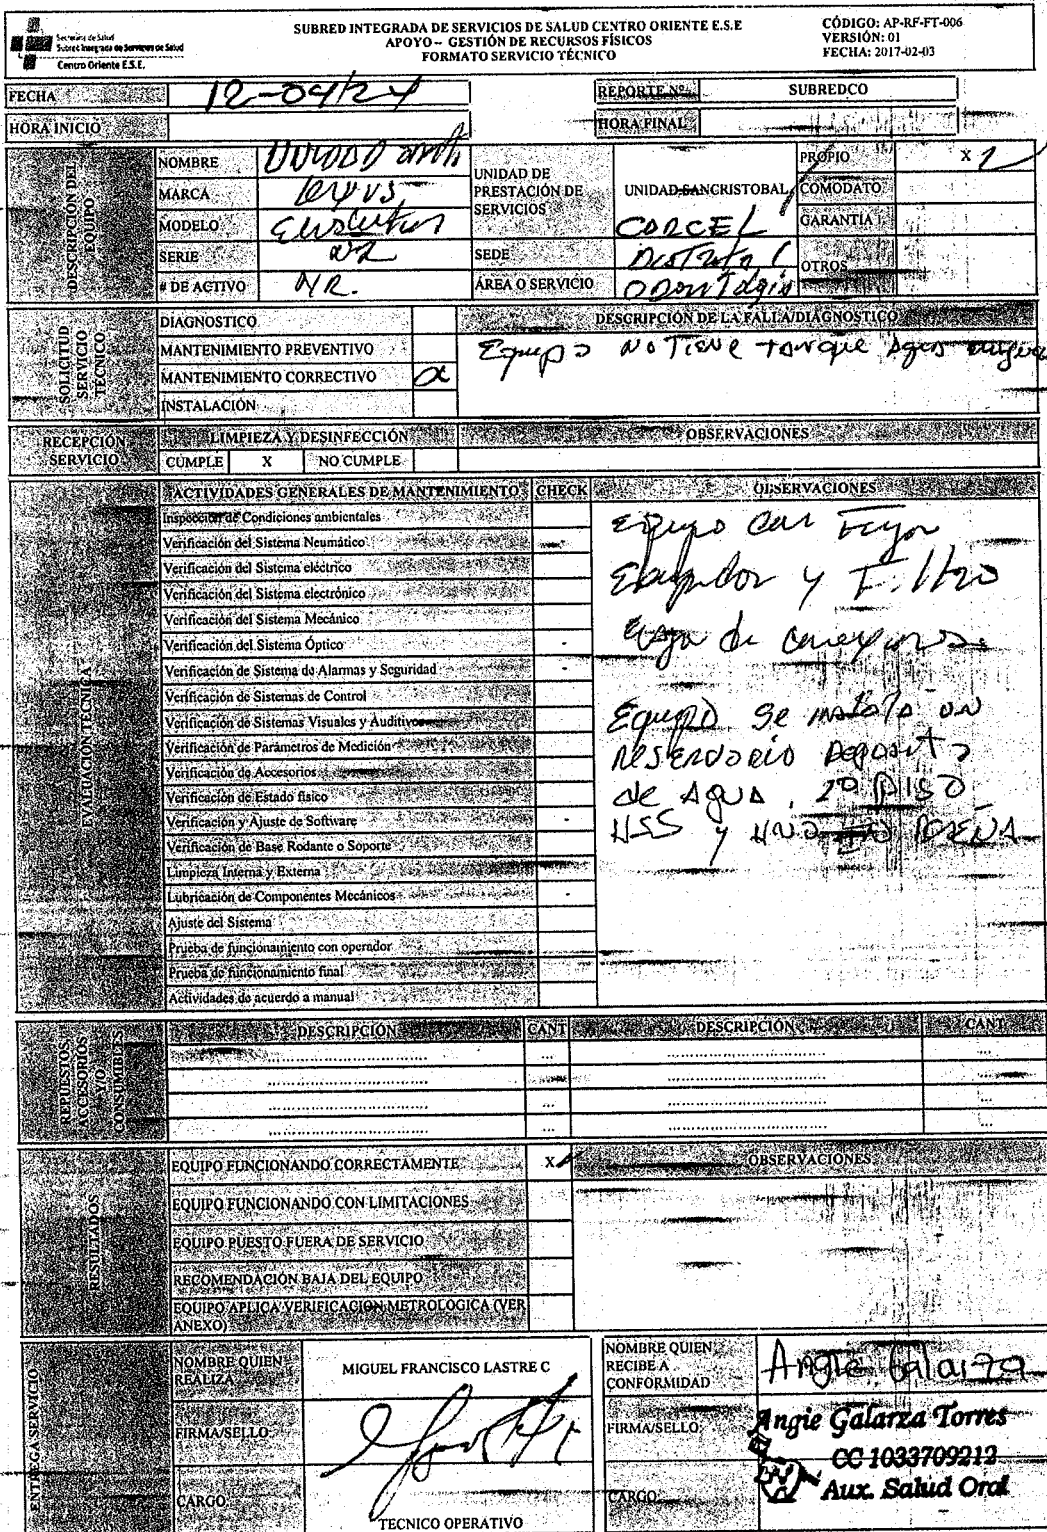 Secretaría de Salud
Subred Integrada de Servicios de Salud
Centro Oriente E.S.E.
SUBRED INTEGRADA DE SERVICIOS DE SALUD CENTRO ORIENTE E.S.E
APOYO – GESTIÓN DE RECURSOS FÍSICOS
FORMATO SERVICIO TÉCNICO
CÓDIGO: AP-RF-FT-006
VERSIÓN: 01
FECHA: 2017-02-03
FECHA 12-04/24
REPORTE Nº SUBREDCO
HORA INICIO
HORA FINAL
DESCRIPCIÓN DEL EQUIPO
NOMBRE
MARCA
MODELO
SERIE NR
# DE ACTIVO NR.
UNIDAD DE PRESTACIÓN DE SERVICIOS
UNIDAD SANCRISTOBAL
SEDE Distrito
ÁREA O SERVICIO Odontología
PROPIO X
COMODATO
GARANTIA
OTROS
SOLICITUD SERVICIO TÉCNICO
DIAGNOSTICO
MANTENIMIENTO PREVENTIVO
MANTENIMIENTO CORRECTIVO X
INSTALACIÓN
DESCRIPCIÓN DE LA FALLA/DIAGNOSTICO
Equipo NO Tiene tanque Agua
RECEPCIÓN SERVICIO
LIMPIEZA Y DESINFECCIÓN
OBSERVACIONES
CUMPLE X NO CUMPLE
EVALUACIÓN TÉCNICA
ACTIVIDADES GENERALES DE MANTENIMIENTO CHECK OBSERVACIONES
Inspección de Condiciones ambientales
Verificación del Sistema Neumático
Verificación del Sistema eléctrico
Verificación del Sistema electrónico
Verificación del Sistema Mecánico
Verificación del Sistema Óptico -
Verificación de Sistema de Alarmas y Seguridad -
Verificación de Sistemas de Control
Verificación de Sistemas Visuales y Auditivos
Verificación de Parámetros de Medición
Verificación de Accesorios
Verificación de Estado físico
Verificación y Ajuste de Software -
Verificación de Base Rodante o Soporte
Limpieza Interna y Externa
Lubricación de Componentes Mecánicos -
Ajuste del Sistema
Prueba de funcionamiento con operador
Prueba de funcionamiento final
Actividades de acuerdo a manual
Equipo con
y Filtro
de
Equipo Se instala un
RESERVORIO Deposito
de AGUA. 2º PISO
y
REPUESTOS, ACCESORIOS Y/O CONSUMIBLES
DESCRIPCIÓN CANT DESCRIPCIÓN CANT
RESULTADOS
EQUIPO FUNCIONANDO CORRECTAMENTE X
EQUIPO FUNCIONANDO CON LIMITACIONES
EQUIPO PUESTO FUERA DE SERVICIO
RECOMENDACIÓN BAJA DEL EQUIPO
EQUIPO APLICA VERIFICACION METROLOGICA (VER ANEXO)
OBSERVACIONES
ENTREGA SERVICIO
NOMBRE QUIEN REALIZA MIGUEL FRANCISCO LASTRE C
FIRMA/SELLO
CARGO TECNICO OPERATIVO
NOMBRE QUIEN RECIBE A CONFORMIDAD Angie Galarza
FIRMA/SELLO
Angie Galarza Torres
CC 1033709212
Aux. Salud Oral
CARGO